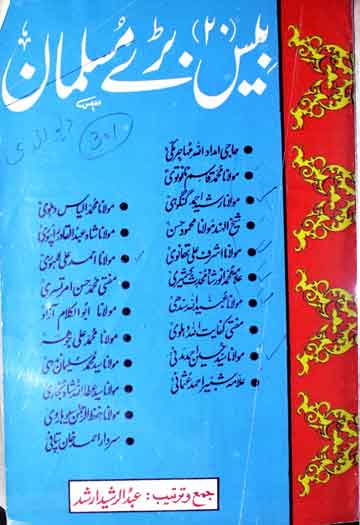 بیس (۲۰) بڑے مسلمان
301
حاجی امداد اللہ مہاجر مکیؒ
مولانا محمد قاسم نانوتویؒ
مولانا رشید احمد گنگوہیؒ
شیخ الہند مولانا محمود حسنؒ
مولانا اشرف علی تھانویؒ
علامہ محمد انور شاہ کشمیریؒ
مولانا عبید اللہ سندھیؒ
مفتی کفایت اللہ دہلویؒ
مولانا سید حسین احمد مدنیؒ
علامہ شبیر احمد عثمانیؒ
مولانا محمد الیاس دہلویؒ
مولانا شاہ عبدالقادر رائپوریؒ
مولانا احمد علی لاہوریؒ
مفتی محمد حسن امرتسریؒ
مولانا ابوالکلام آزاد
مولانا محمد علی جوہرؒ
مولانا سید محمد سلیمان ندویؒ
مولانا سید عطا اللہ شاہ بخاریؒ
مولانا حفظ الرحمٰن سیوہارویؒ
سردار احمد خان پتافی
جمع و ترتیب : عبدالرشید ارشد